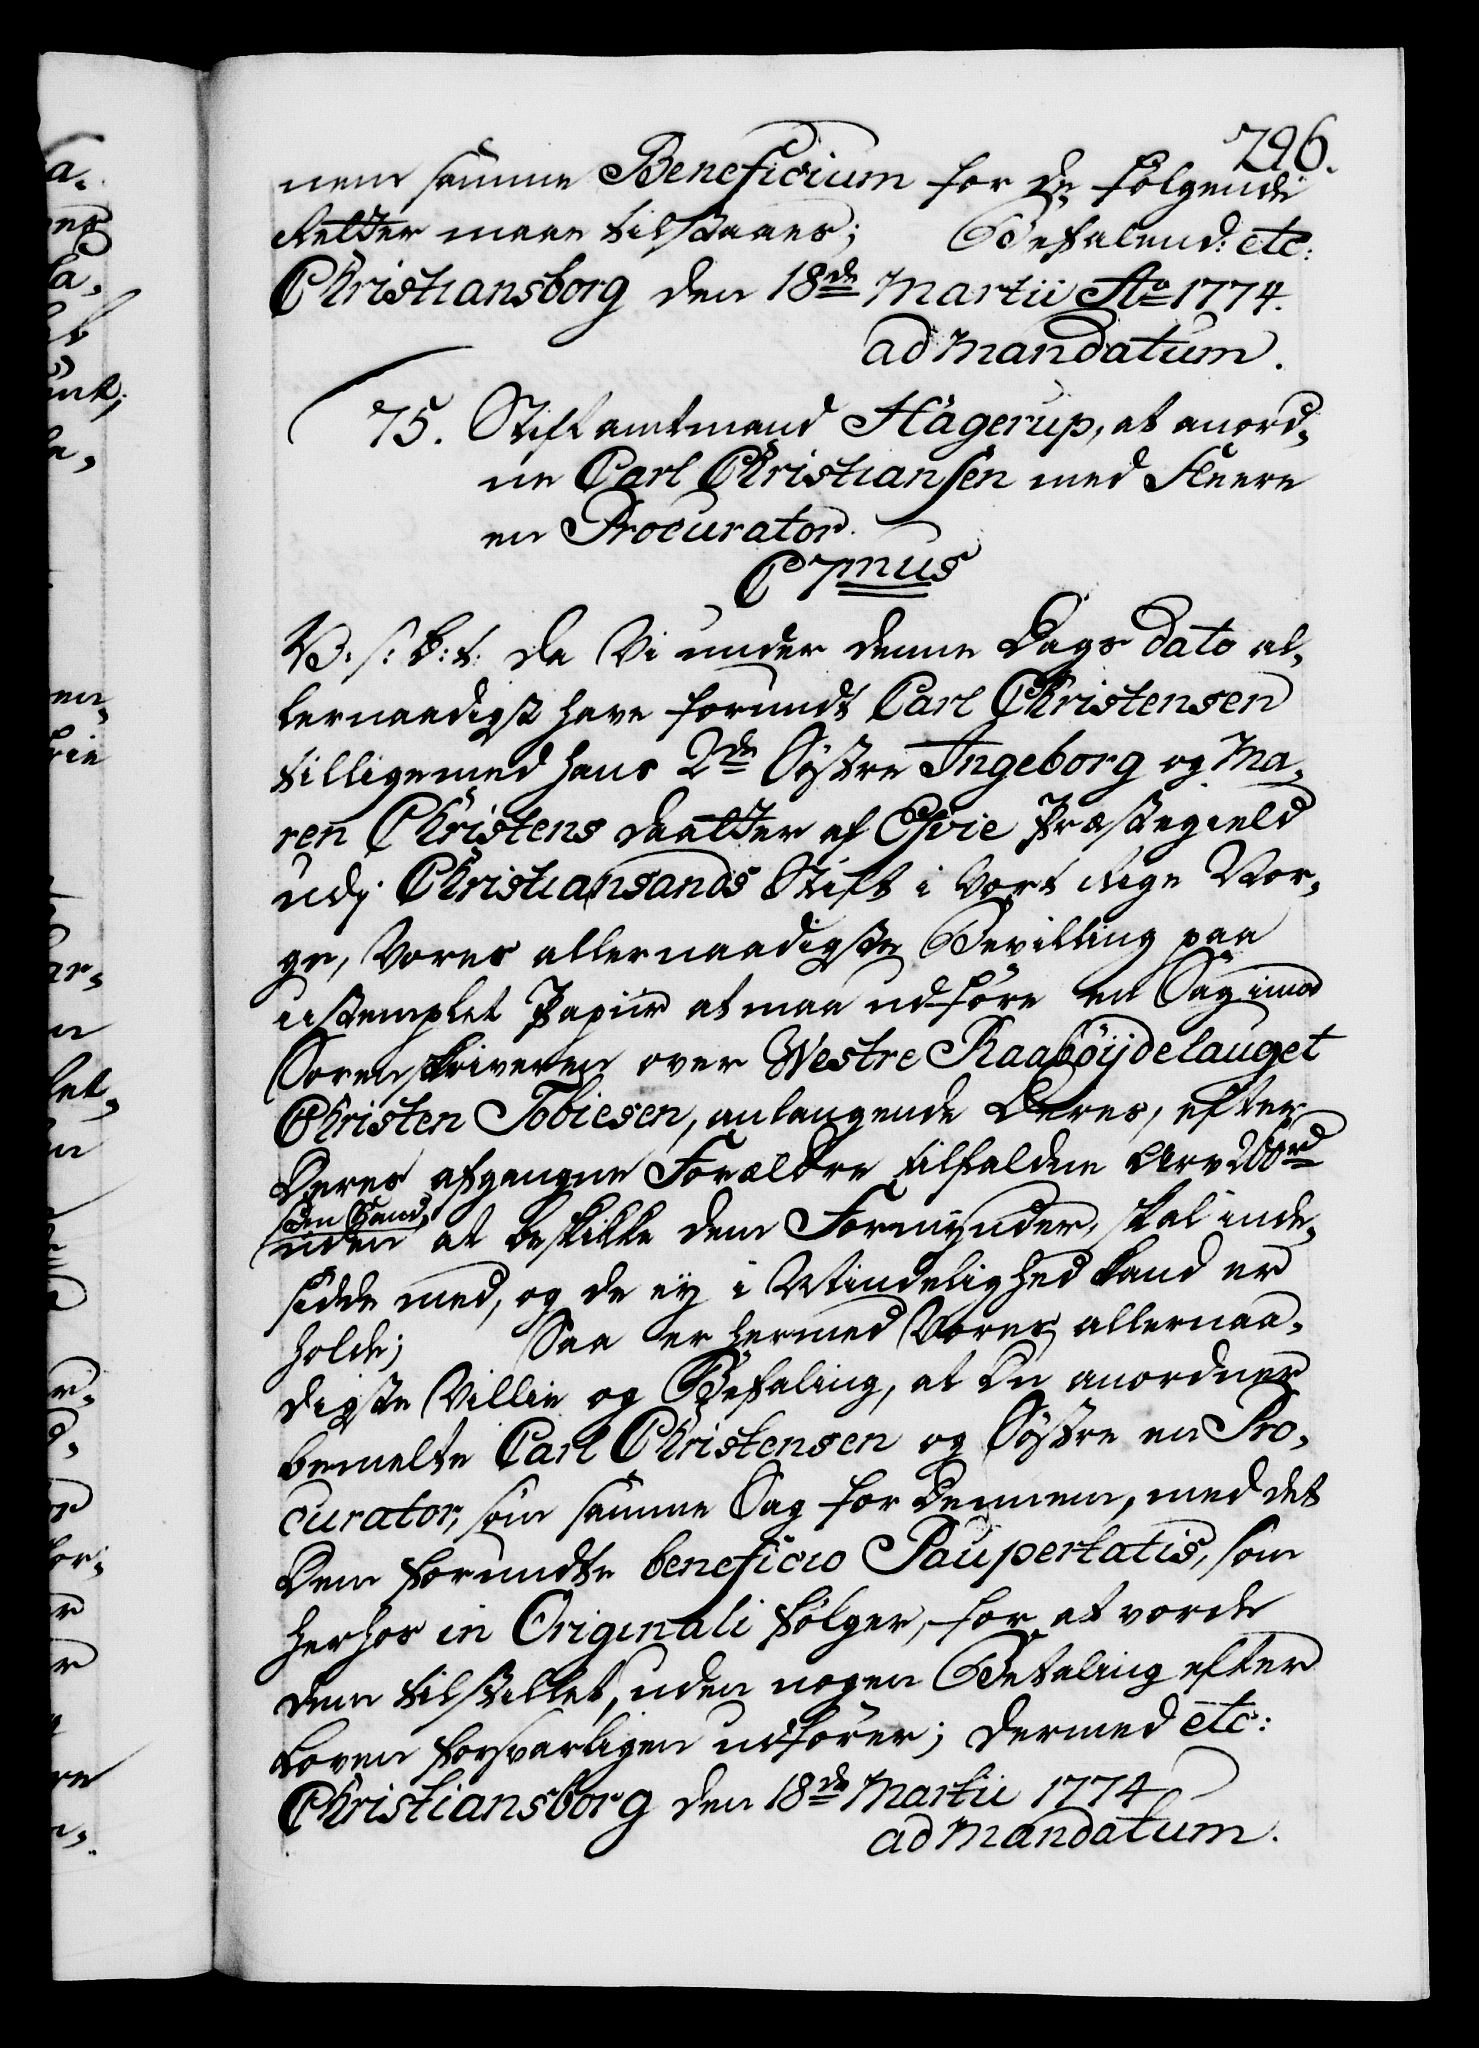 796.
nem samme Beneficium for de følgende
Retter maae tilstaaes; Befalend: etc:
Christiansborg den 18de Martii Ao 1774.
ad Mandatum.
75. Stiftamtmand Hagerup, at anord-
ne Carl Christiansen med Fleere
en Procurator.
C 7mus
V. s: b: t: Da Vi under denne Dags dato al-
lernaadigst have forundt Carl Christensen
tilligemed hans 2de Søstre Ingeborg og Ma-
ren Christens Daatter af Evie Præstegield
udj Christiansands Stift i Vort Rige Nor-
ge, Vores allernaadigste Bevilling paa
ustemplet Papiir at maa udføre en Sag imod
Sorenskriveren over Westre Raabøijdelauget
Christen Tobiesen, anlangende Deres, efter
Deres afgangne Forældre tilfaldne Arv 200rd
som Hand,
uden at beskikke dem Formynder, skal inde-
sidde med, og de ey i Mindelighed kand er
holde; Saa er hermed Vores allernaa-
digste Villie og Befaling, at Du anordner
bemelte Carl Christensen og Søstre en Pro-
curator, som samme Sag for Dennem, med det
Dem forundte beneficio Paupertatis, som
herhos in Originali følger, for at vorde
dem tilstillet, uden nogen Betaling efter
Loven forsvarligen udfører; Dermed etc:
Christiansborg den 18de Martii 1774
ad Mandatum.